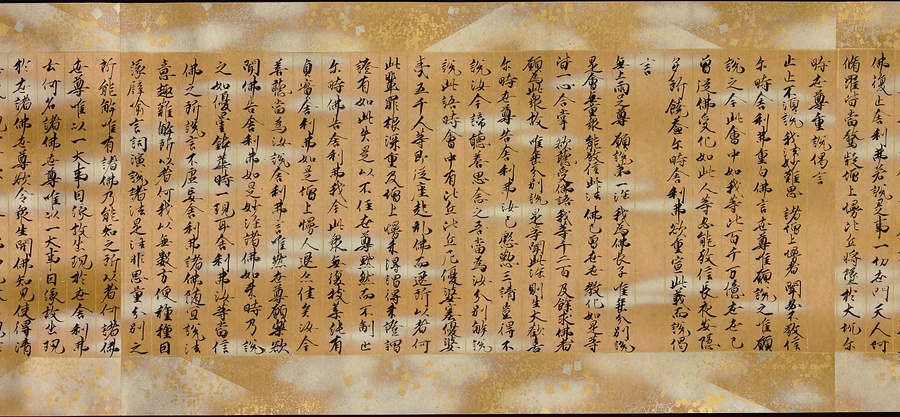 佛復止舍利弗若說是事一切世間天人阿
脩羅皆當驚疑增上慢比丘將墜於大坑尒
時世尊重說偈言
止止不須說 我法妙難思 諸增上慢者 聞必不敬信
尒時舍利弗重白佛言世尊唯願說之唯願
說之今此會中如我等比百千万億世世已
曾從佛受化如此人等必能敬信長夜安隱
多所饒益尒時舍利弗欲重宣此義而說偈
言
無上兩足尊 願說第一法 我為佛長子 唯垂分別說
是會無量眾 能敬信此法 佛已曾世世 教化如是等
皆一心合掌 欲聽受佛語 我等千二百 及餘求佛者
願為此眾故 唯垂分別說 是等聞此法 則生大歡喜
尒時世尊告舍利弗汝已慇懃三請豈得不
說汝今諦聽善思念之吾當為汝分別解說
說此語時會中有比丘比丘尼優婆塞優婆
夷五千人等即從座起礼佛而退所以者何
此輩罪根深重及增上慢未得謂得未證謂
證有如此失是以不住世尊默然而不制止
尒時佛告舍利弗我今此眾無復枝葉純有
貞實舍利弗如是增上慢人退亦佳矣汝今
善聽當為汝說舍利弗言唯然世尊願樂欲
聞佛告舍利弗如是妙法諸佛如來時乃說
之如優曇鉢華時一現耳舍利弗汝等當信
佛之所說言不虛妄舍利弗諸佛隨宜說法
意趣難解所以者何我以無數方便種種因
緣譬喻言詞演說諸法是法非思量分別之
所能解唯有諸佛乃能知之所以者何諸佛
世尊唯以一大事因緣故出現於世舍利弗
云何名諸佛世尊唯以一大事因緣故出現
於世諸佛世尊欲令眾生開佛知見使得清